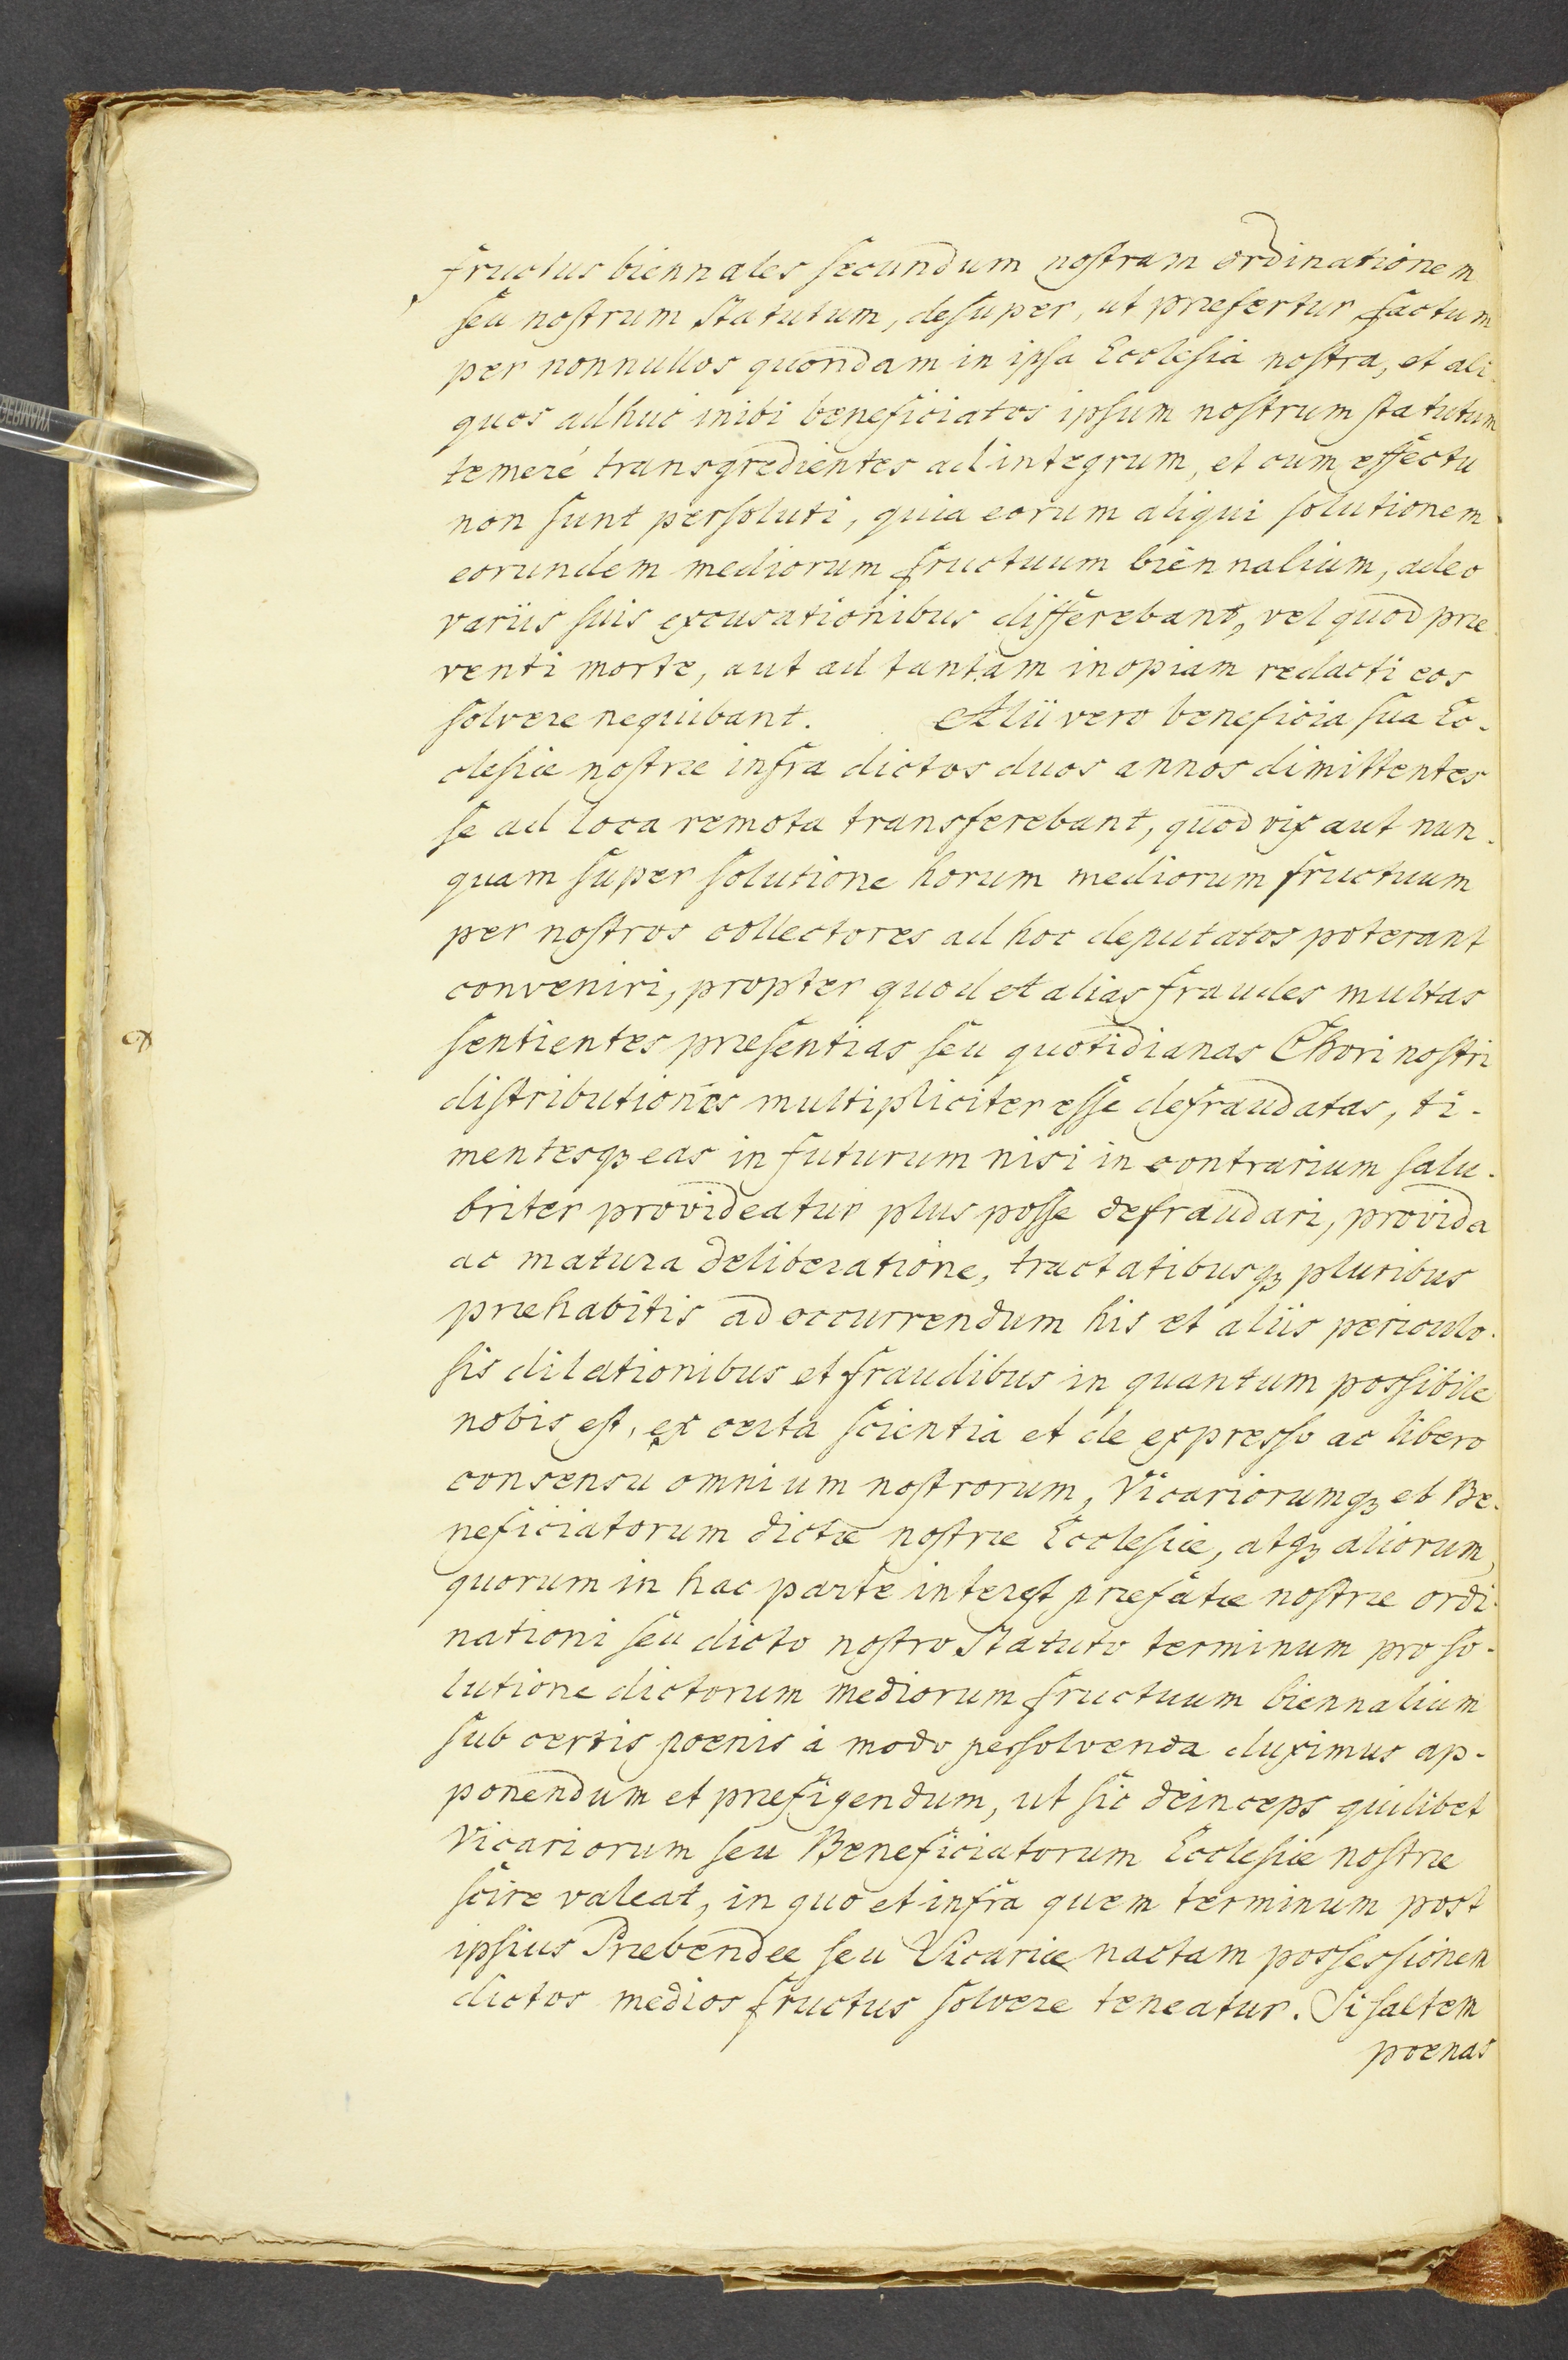 fructus biennales secundum nostram ordinationem
seu nostrum Statutum, desuper, ut præfertur factum
per nonnullos quondam in ipsa Ecclesia nostra, et ali-
quos adhuc inibi beneficiatos ipsum nostrum statutum
temeré transgredientes ad integrum, et cum effectu
non sunt persoluti, quia eorum aliqui solutionem
eorundem mediorum fructuum biennalium, adeo
variis suis excusationibus differebant, vel quod præ-
venti morte, aut ad tantam inopiam redacti eos
solvere nequibant. Alii vero beneficia sua Ec-
clesiæ nostræ infra dictos duos annos dimittentes
se ad loca remota transferebant, quod vix aut nun-
quam super solutione horum mediorum fructuum
per nostros collectores ad hoc deputatos poterant
conveniri, propter quod et alias fraudes multas
sentientes præsentias seu quotidianas Chori nostri
distributiones multipliciter esse defraudatas, ti-
mentesqȝ eas in futurum nisi in contrarium salu-
briter provideatur plus posse defraudari, provida
ac matura deliberatione, tractatibusqȝ pluribus
præhabitis ad occurrendum his et aliis periculo-
sis dilationibus et fraudibus in quantum possibile
nobis est, ex certa scientia et de expresso ac libero
consensu omnium nostrorum, Vicariorumqȝ et Be-
neficiatorum dictæ nostræ Ecclesiæ, atqȝ aliorum,
quorum in hac parte interest præfatæ nostræ ordi-
nationi seu dicto nostro Statuto terminum pro so-
lutione dictorum mediorum fructuum biennalium
sub certis poenis à modo persolvenda duximus ap-
ponendum et præfigendum, ut sic deinceps quilibet
Vicariorum seu Beneficiatorum Ecclesiæ nostræ
scire valeat, in quo et infra quem terminum post
ipsius Præbendæ seu Vicariæ nactam possessionem
dictos medios fructus solvere teneatur. Si saltem
poenas